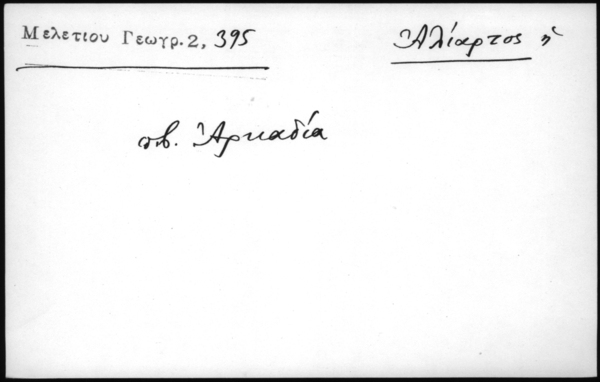 Μελετιου Γεωγρ. 2, 395
Ἁλίαρτος ἡ
πβ. Ἀρκαδία